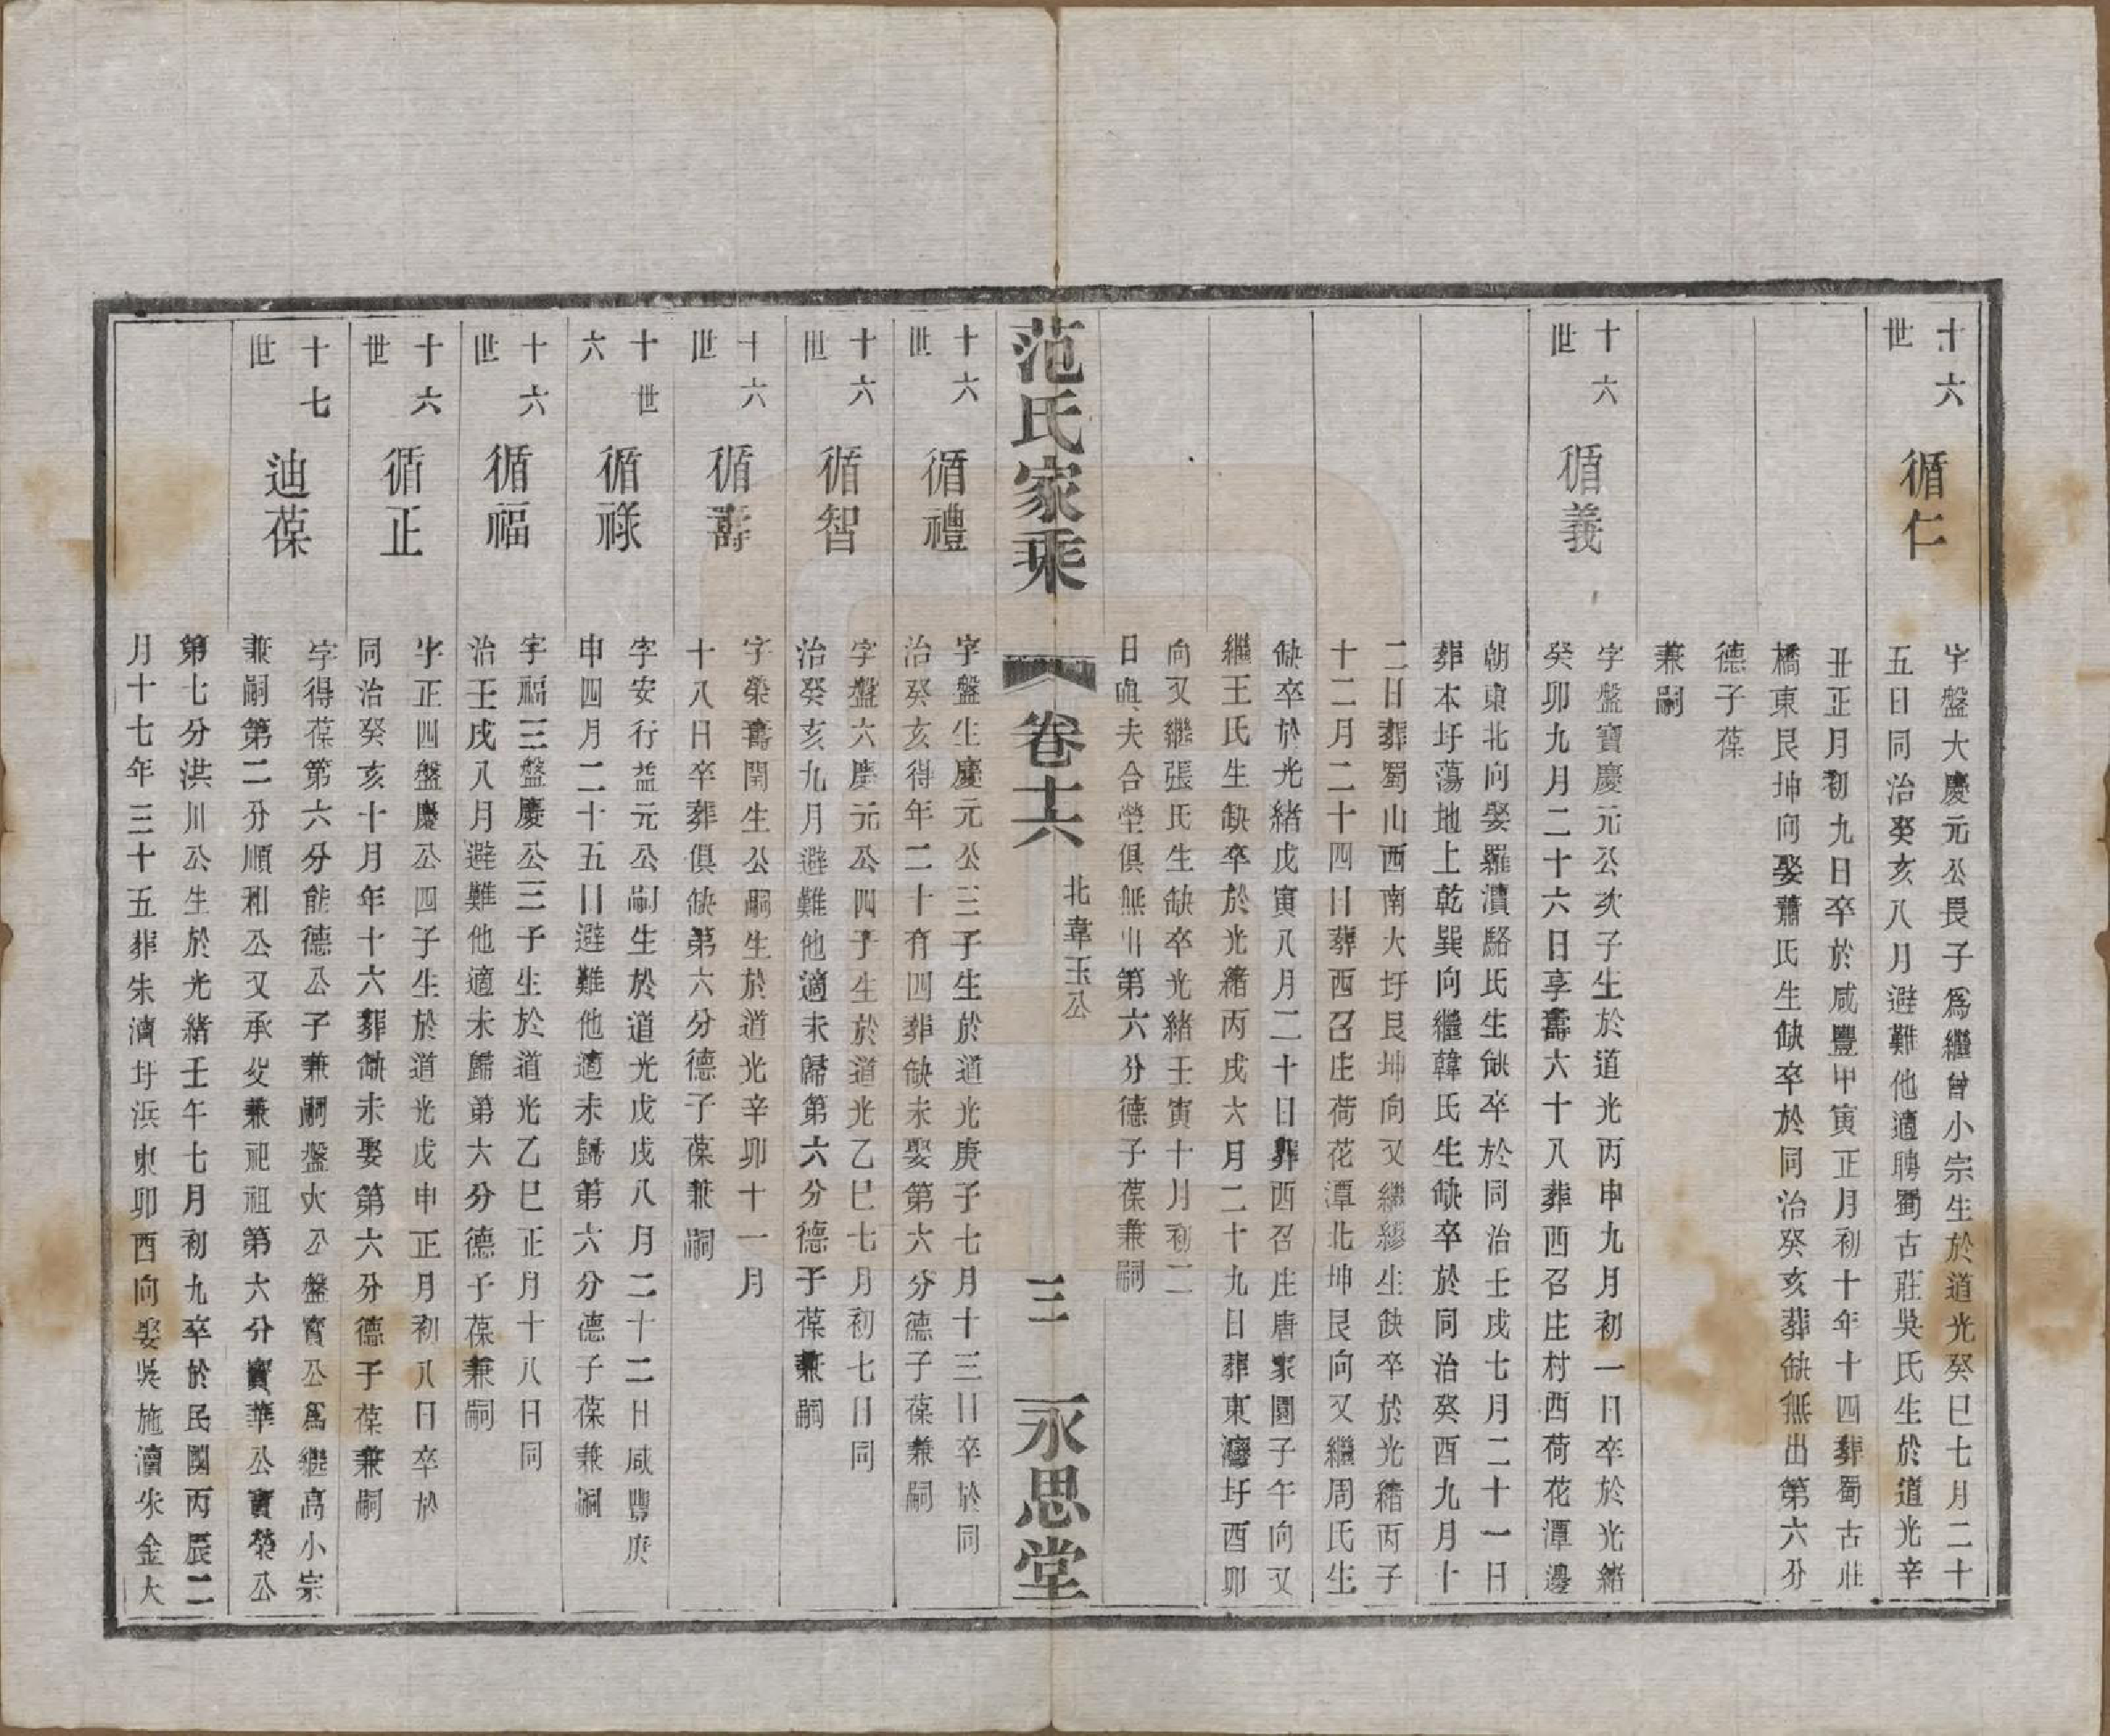 十六世
循仁
字盤大慶元公長子為繼曾小宗生於道光癸巳七月二十
五日同治癸亥八月避難他適聘蜀古莊吳氏生於道光辛
丑正月初九日卒於咸豐甲寅正月初十年十四葬蜀古莊
橋東艮坤向娶蕭氏生缺卒於同治癸亥葬缺無出第六分
德子葆
兼嗣
十六世
循義
字盤寶慶元公次子生於道光丙申九月初一日卒於光緒
癸卯九月二十六日享壽六十八葬西召庄村西荷花潭邊
朝東北向娶羅瀆駱氏生缺卒於同治壬戌七月二十一日
葬本圩蕩地上乾巽向繼韓氏生缺卒於同治癸酉九月十
二日葬蜀山西南大圩艮坤向又繼繆生缺卒於光緒丙子
十二月二十四日葬西召庄荷花潭北坤艮向又繼周氏生
缺卒於光緒戊寅八月二十日葬西召庄唐家園子午向又
繼王氏生缺卒於光緒丙戌六月二十九日葬東灣圩酉卯
向又繼張氏生缺卒光緒壬寅十月初二
日與夫合塋俱無出第六分德子葆兼嗣
范氏家乘
卷十六
北韋玉公
三
永思堂
十六世
循禮
字盤生慶元公三子生於道光庚子七月十三日卒於同
治癸亥得年二十有四葬缺未娶第六分德子葆兼嗣
十六世
循智
字盤六慶元公四子生於道光乙巳七月初七日同
治癸亥九月避難他適未歸第六分德子葆兼嗣
十六世
循壽
字榮壽開生公嗣生於道光辛卯十一月
十八日卒葬俱缺第六分德子葆兼嗣
十六世
循祿
字安行益元公嗣生於道光戊戌八月二十二日咸豐庚
申四月二十五日避難他適未歸第六分德子葆兼嗣
十六世
循福
字福三盤慶公三子生於道光乙巳正月十八日同
治壬戌八月避難他適未歸第六分德子葆兼嗣
十六世
循正
字正四盤慶公四子生於道光戊申正月初八日卒於
同治癸亥十月年十六葬缺未娶第六分德子葆兼嗣
十七世
迪葆
字得葆第六分能德公子兼嗣盤大公盤寶公為繼高小宗
兼嗣第二分順和公又承父兼祀祖第六分寶華公寶榮公
第七分洪川公生於光緒壬午七月初九卒於民國丙辰二
月十七年三十五葬朱瀆圩浜東卯酉向娶吳施瀆朱金大